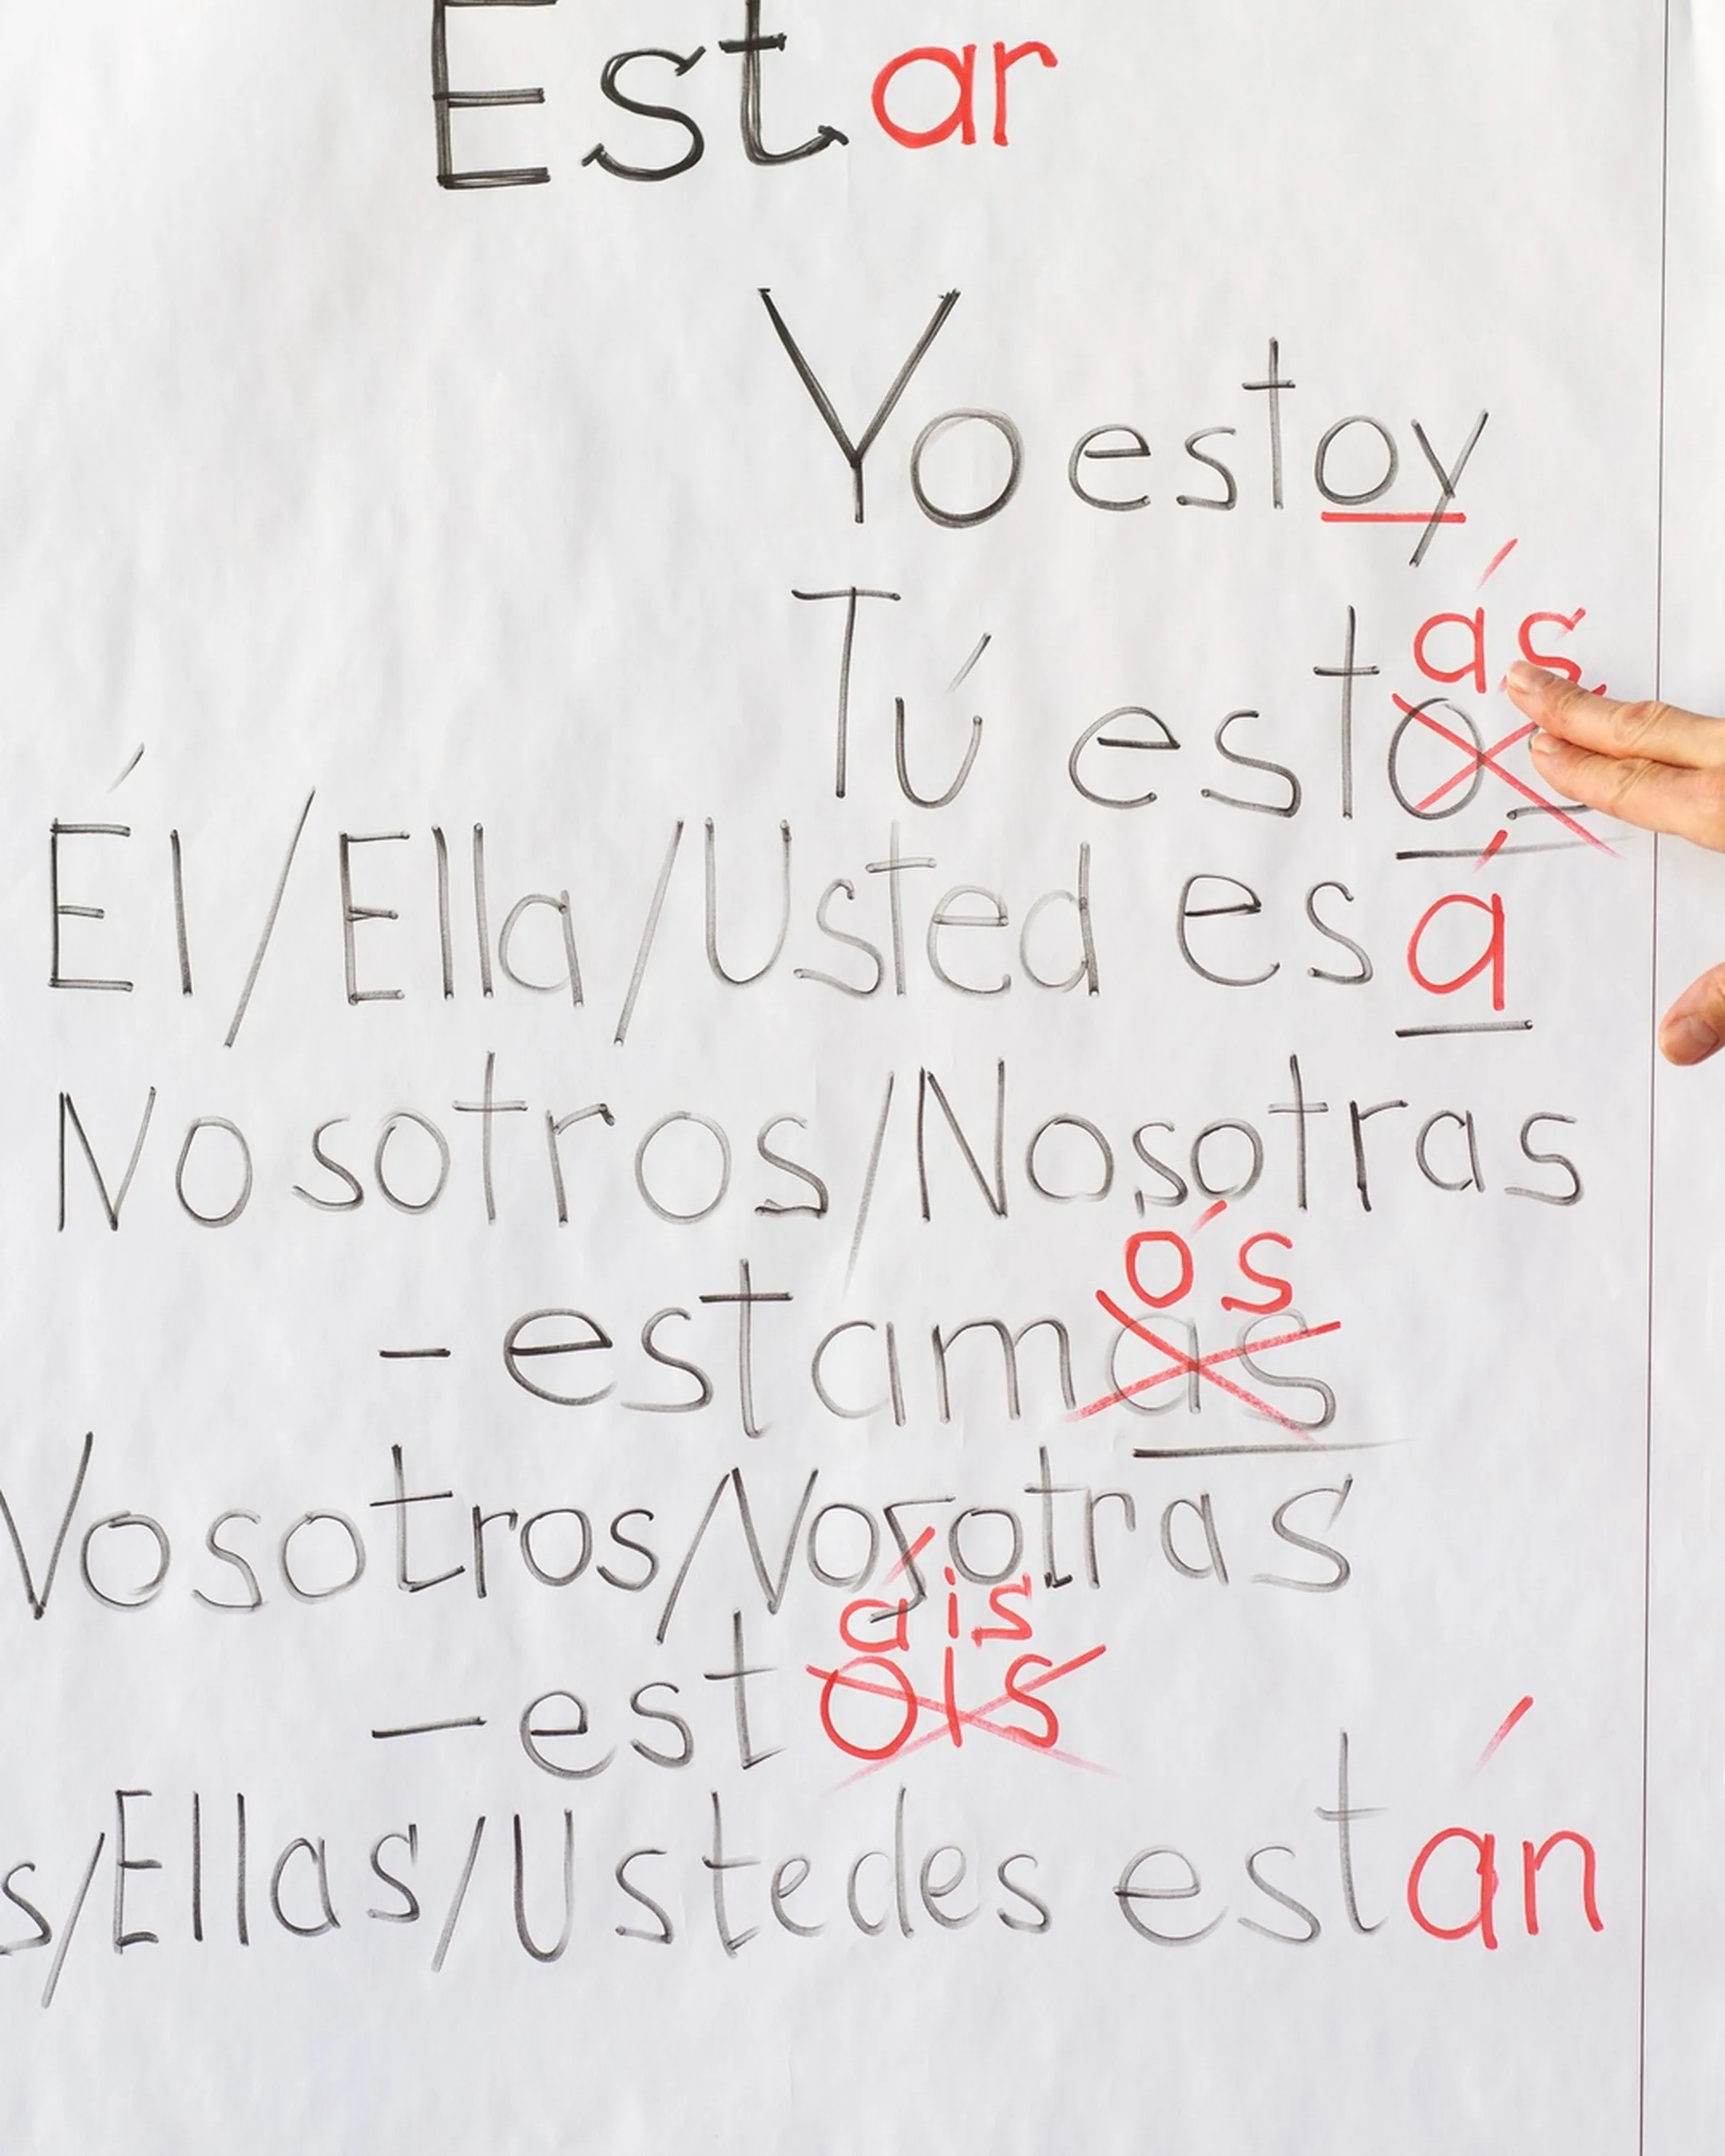 Estar
Yo estoy
ás
Tú esto
Él/Ella/Usted esá
Nosotros/Nosotras
ós
- estamas
Vosotros/Nosotras
áis
- estois
s/Ellas/Ustedes están